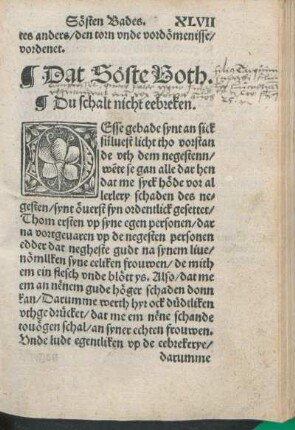 Sösten Bades. XLVII
tes anders/den torn vnde vordömenisse/
vordenet.
¶ Dat Söste Both.
¶ Du schalt nicht eebreken.
DEsse gebade synt an sick
süluest licht tho vorstan
de vth dem negestenn/
wēte se gan alle dar hen
dat me syck höde vor al
lerlery schaden des ne-
gesten/synt öuerst syn ordentlick gesettet/
Thom ersten vp syne egen personen/dar
na vortgeuaren vp de negesten personen
edder dat negheste gudt na synem liue/
nömliken syne eeliken frouwen/de mith
em ein flesch vnde blött ys. Also/dat me
em an nēnem gude höger schaden donn
kan/Darumme werth hyr ock düdtliken
vthge drücket/dat me em nēne schande
touögen schal/an syner echten frouwen.
Vnde ludt egentliken vp de eebrekerye/
darumme